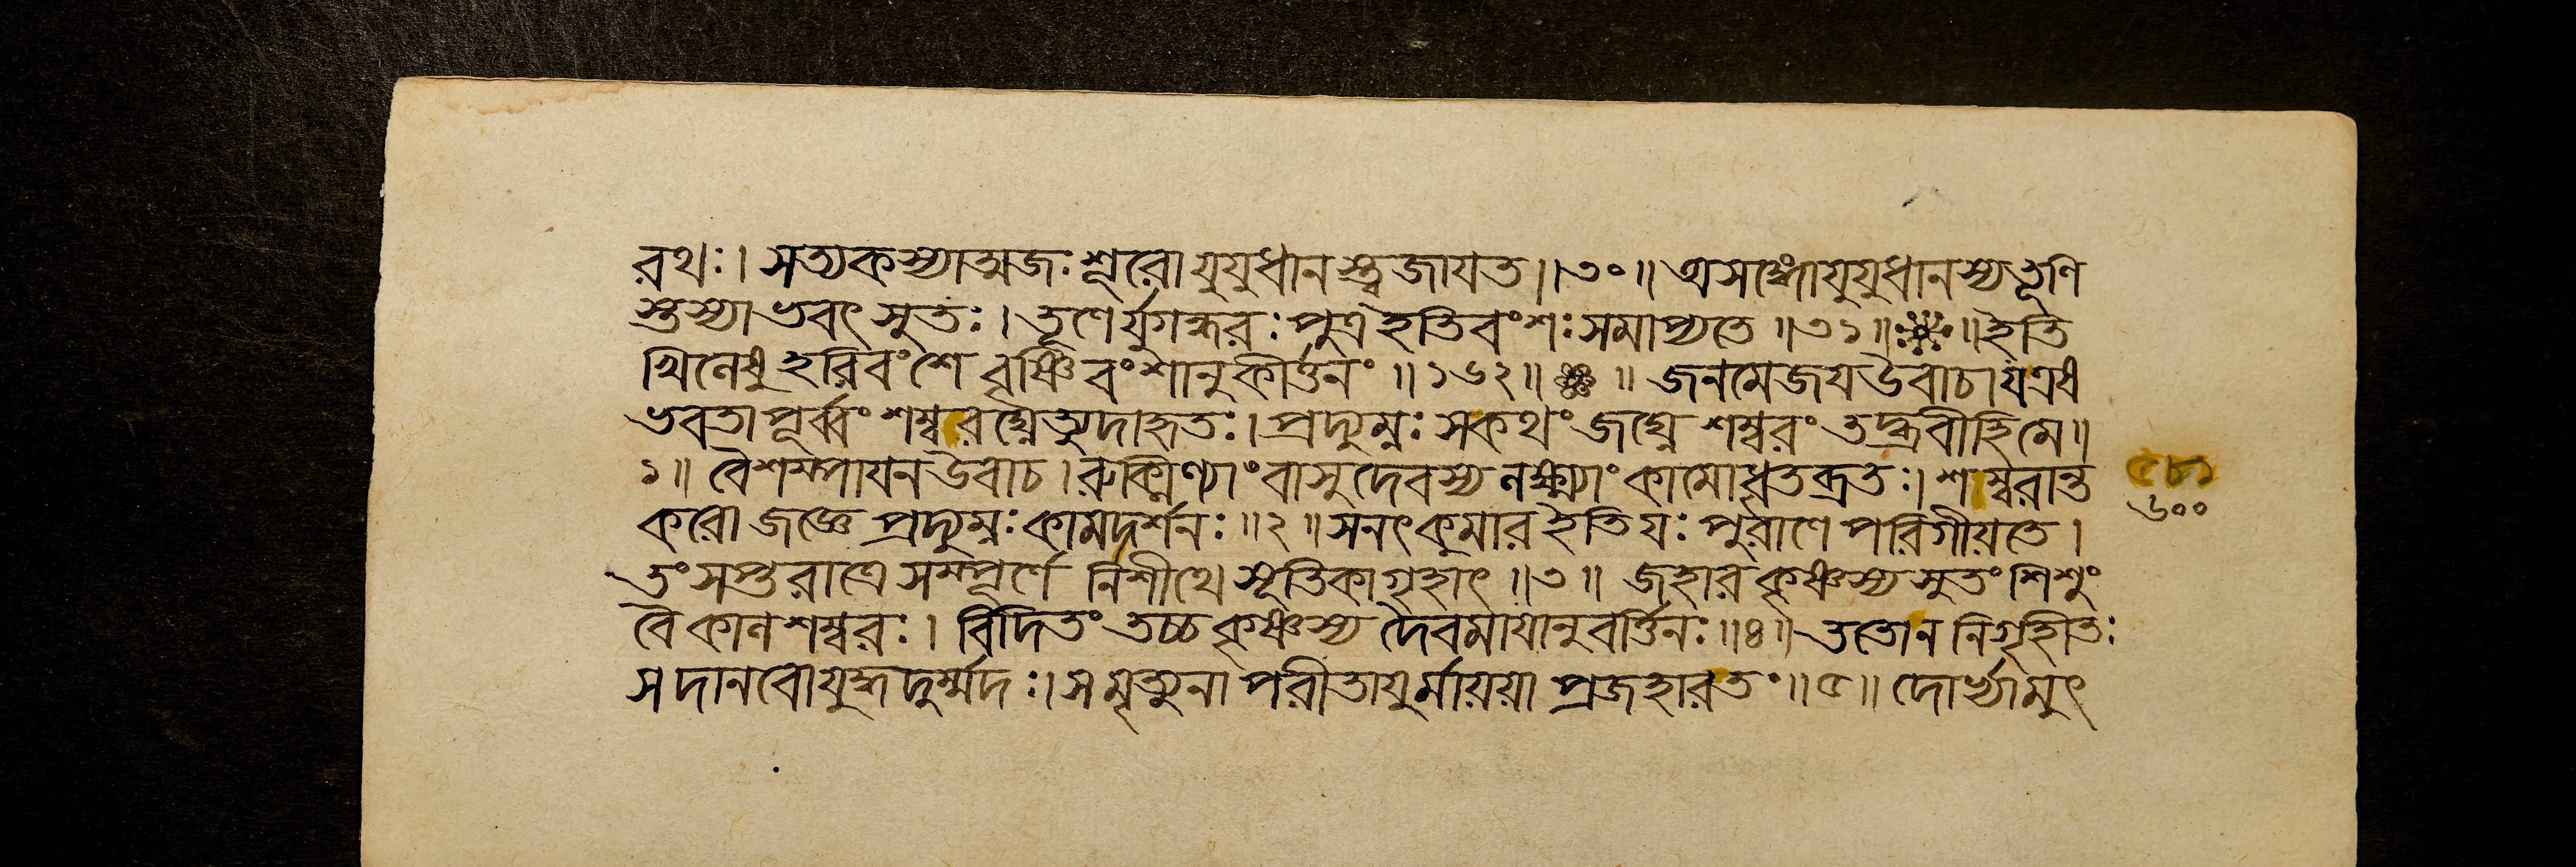 রথঃ। সত্যকস্যাত্মজঃ শূরো যুযুধানস্ত্বজাযত॥৩০॥ অসঙ্গো যুযুধানস্য ভূণি
স্তস্যাভবৎ সুতঃ। ভূণের্যুগন্ধরঃ পুত্র ইতি বংশঃ সমাপ্যতে॥৩১॥ ॥ ইতি
খিলেষু হরিবংশে বৃষ্ণিবংশানুকীর্ত্তনং॥১৬২॥ ॥ জনমেজয উবাচ। য এষ
ভবতা পূর্ব্বং শম্বরঘ্নেত্যুদাহৃতঃ। প্রদ্যুম্নঃ স কথং জঘ্নে শম্বরং তদ্ব্রবীহি মে॥
১॥ বৈশম্পাযন উবাচ। রুক্মিণ্যাং বাসুদেবস্য লক্ষ্ম্যাং কামো ধৃতব্রতঃ। শম্বরান্ত
করো জজ্ঞে প্রদ্যুম্নঃ কামদর্শনঃ॥২॥ সনৎকুমার ইতি যঃ পুরাণে পরিগীয়তে।
তং সপ্তরাত্রে সম্পূর্ণে নিশীথে সূতিকাগৃহাৎ॥৩॥ জহার কৃষ্ণস্য সুতং শিশুং
বৈ কাল শম্বরঃ। বিদিতং তচ্চ কৃষ্ণস্য দৈবমাযানুবর্ত্তিনঃ॥৪॥ ততো ন নিগৃহীতঃ
স দানবো যুদ্ধদুর্ম্মদঃ। স মৃত্যুনা পরীতাযুর্মায়য়া প্রজহার তং॥৫॥ দোর্ভ্যামুৎ
৫৮১
৬০০